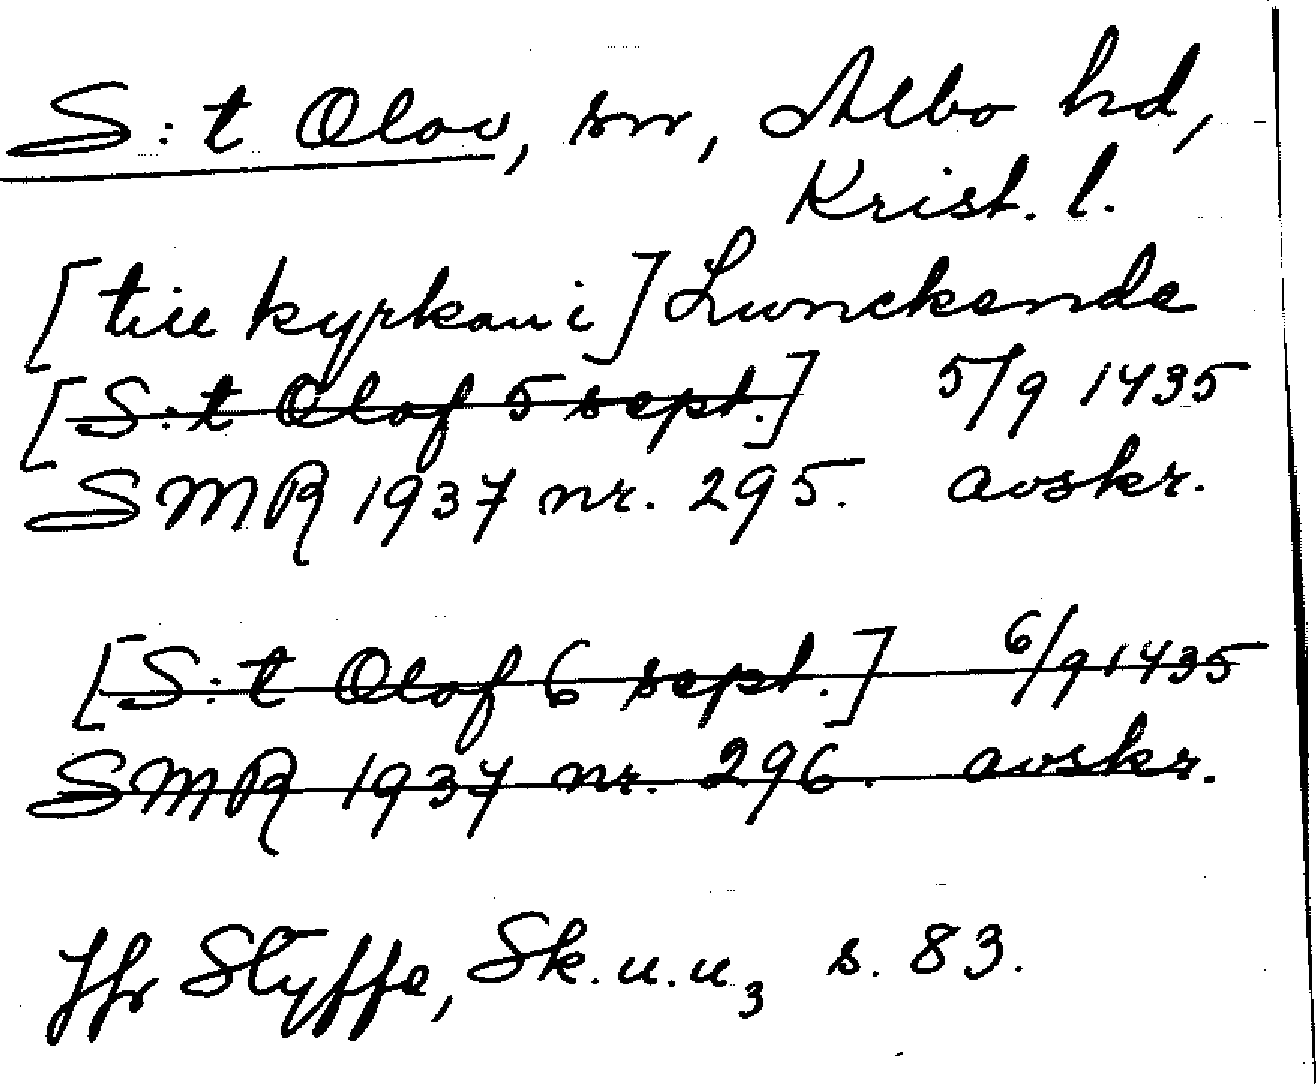 S:t Olov, sn, Albo hd,
Krist. l.
[till kyrkan i] Lunckende
[S:t Olof 5 sept.] 5/9 1435
SMR 1937 nr. 295. avskr.
[S:t Olof 6 sept.] 6/9 1435
SMR 1937 nr. 296. avskr.
Jfr Styffe, Sk.u.u₃ s. 83.